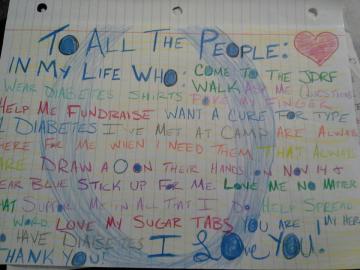 TO ALL THE PEOPLE:
IN MY LIFE WHO: COME TO THE JDRF
WEAR DIABETES SHIRTS WALK ASK ME QUESTIONS
HELP ME FUNDRAISE POKE MY FINGER WANT A CURE FOR TYPE
1 DIABETES I'VE MET AT CAMP ARE ALWAYS
HERE FOR ME WHEN I NEED THEM THAT ALWAYS
ARE DRAW A O ON THEIR HANDS ON NOV 14 &
EAR BLUE STICK UP FOR ME LOVE ME NO MATTER
HAT SUPPORT ME IN ALL THAT I DO HELP SPREAD
WORD LOVE MY SUGAR TABS YOU ARE MY HER
HAVE DIABETES I LOVE YOU!
THANK YOU!